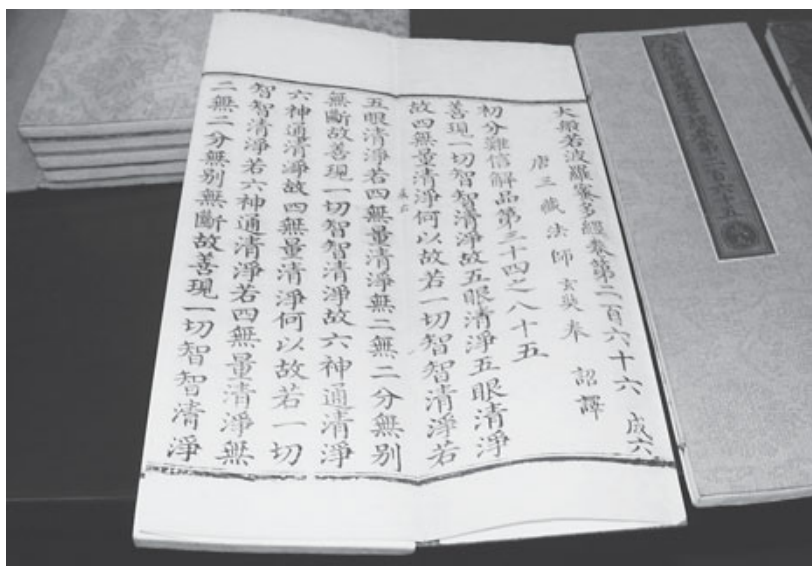 大般若波羅蜜多經卷第二百六十六 成六
唐三藏法師玄奘奉 詔譯
初分難信解品第三十四之八十五
善現一切智智清淨故五眼清淨五眼清淨
故四無量清淨何以故若一切智智清淨若
五眼清淨若四無量清淨無二無二分無別
無斷故善現一切智智清淨故六神通清淨
六神通清淨故四無量清淨何以故若一切
智智清淨若六神通清淨若四無量清淨無
二無二分無別無斷故善現一切智智清淨
大般若波羅蜜多經卷第二百六十五